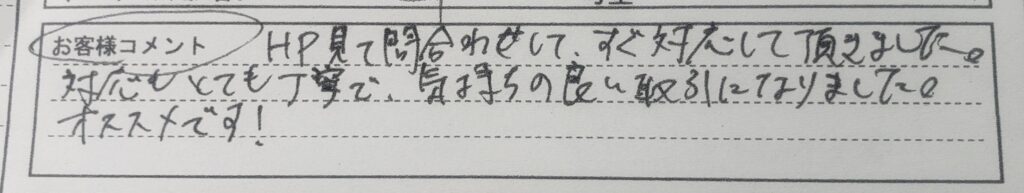 お客様コメント HP見て問合わせして、すぐ対応して頂きました。
対応もとても丁寧で、気持ちの良い取引になりました。
オススメです!